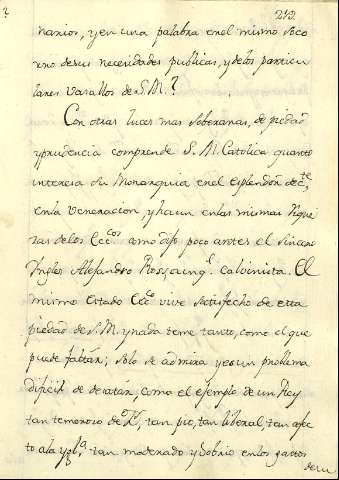 ?
213.
narios, y en una palabra en el mismo soco
rro de sus necesidades publicas, y de los particu
lares vasallos de S.M.?
Con otras luces mas soberanas, de piedad
y prudencia comprende S. M. Catolica quanto
interesa su Monarquia en el esplendor de
en la veneracion, y haun en las mismas rique
zas de los Eccos como dijo poco antes el sincero
Ingles Alejandro Calvinista. El
mismo Estado Ecco vive satisfecho de esta
piedad de S.M. y nada teme tanto, como el que
puede faltar; solo se admira y es un problema
dificil de desatar, como el ejemplo de un Rey
tan temeroso de Ds, tan pio, tan liberal, tan afec
to a la Yglª tan moderado y sobrio en los gastos
de su